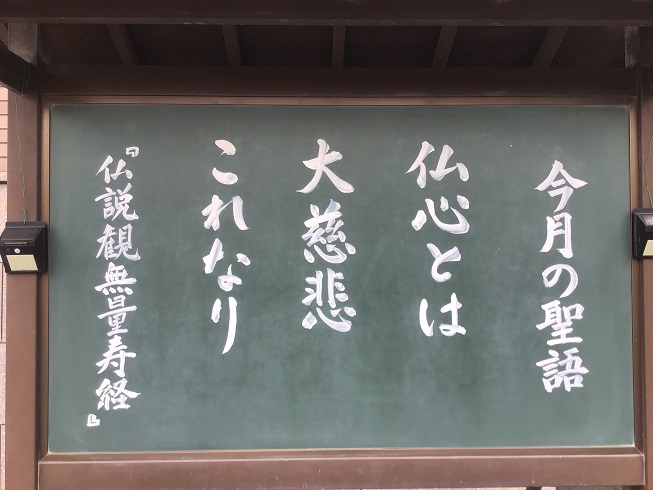 今月の聖語
仏心とは
大慈悲
これなり
『仏説観無量寿経』